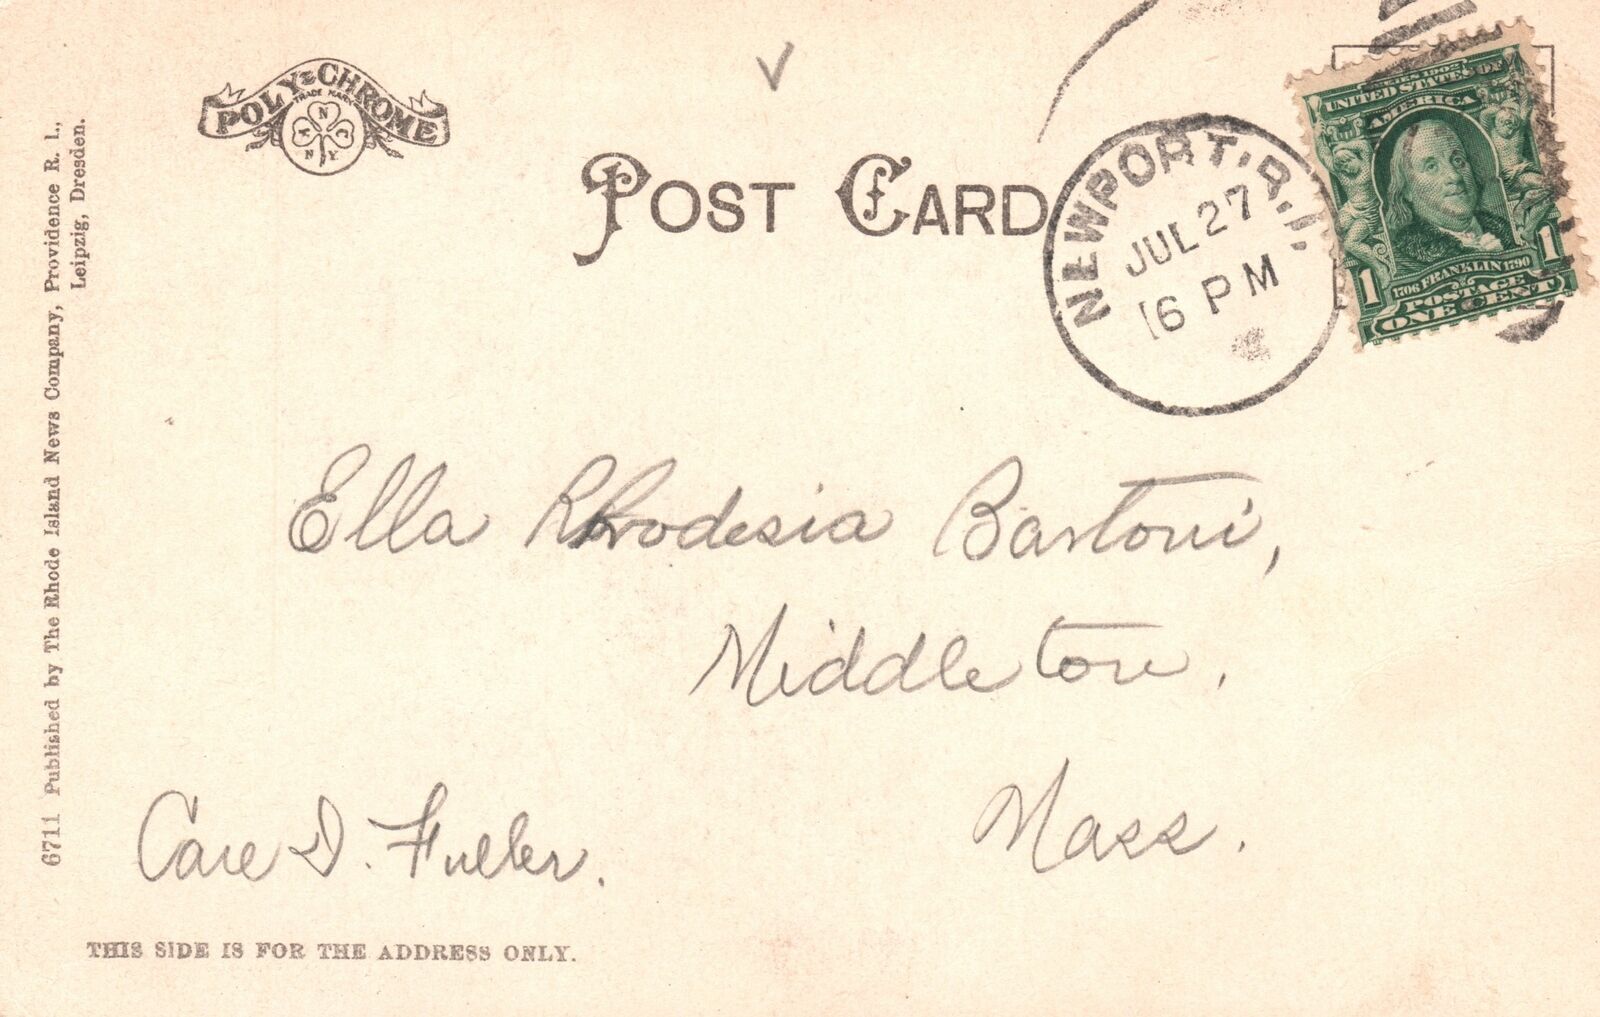 POLY-CHROME
TRADE MARK
A N C
N Y
POST CARD
NEWPORT, R.I.
JUL 27
6 PM
SERIES 1902
UNITED STATES OF
AMERICA
1706 FRANKLIN 1790
1 POSTAGE 1
ONE CENT
6711 Published by The Rhode Island News Company, Providence R. I.,
Leipzig, Dresden.
Ella Rhodesia Bartoni,
Middleton,
Mass.
Care D. Fuller.
THIS SIDE IS FOR THE ADDRESS ONLY.